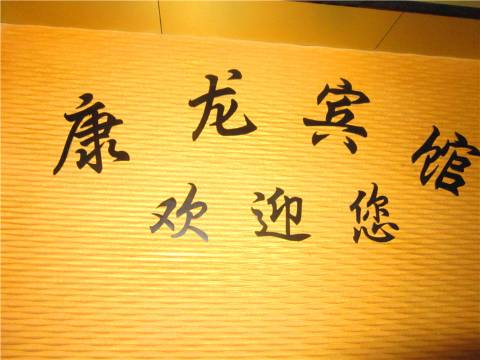 康龙宾馆
欢迎您